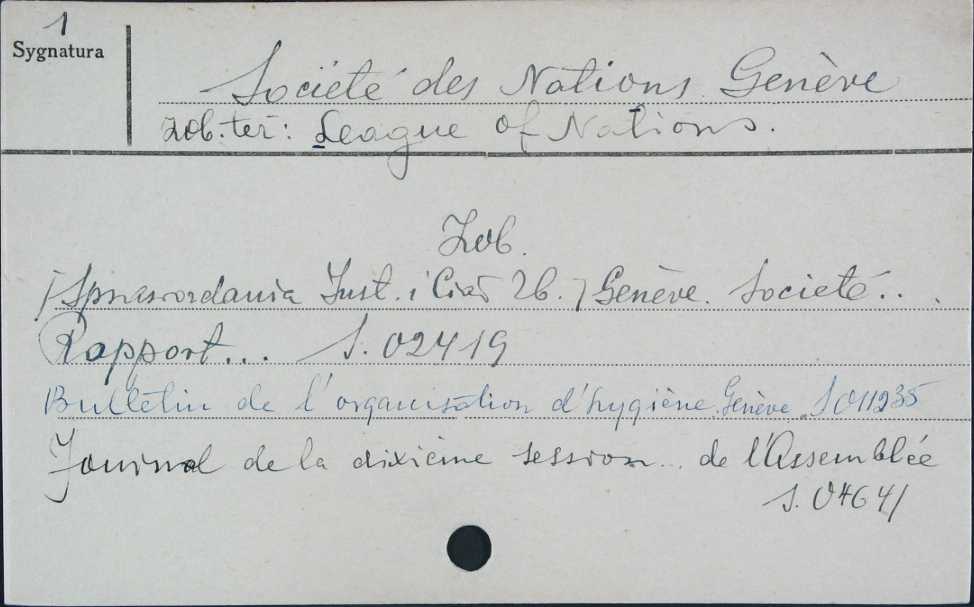 1
Sygnatura
Société des Nations. Genève
Zob. też: League of Nations.
Zob.
[Sprawozdania Inst. i Ciał Zb.] Genève. Société...
Rapport... S. 02419
Bulletin de l'organisation d'hygiène. Genève. S 011235
Journal de la dixième session... de l'Assemblée
S. 04641